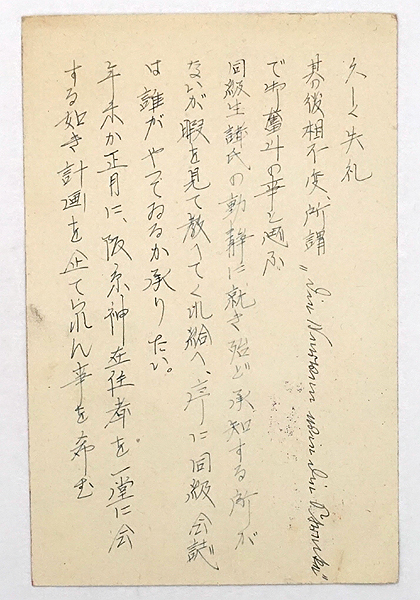 久しく失礼
其後相不変、所謂 „Die
で御奮斗の事と思ふ
同級生諸氏の動静に就き殆ど承知する所が
ないが暇を見て教へてくれ給へ、序に同級会誌
は誰がやってゐるか承りたい。
年末か正月に、阪京神在住者を一堂に会
する如き計画を企てられん事を希む